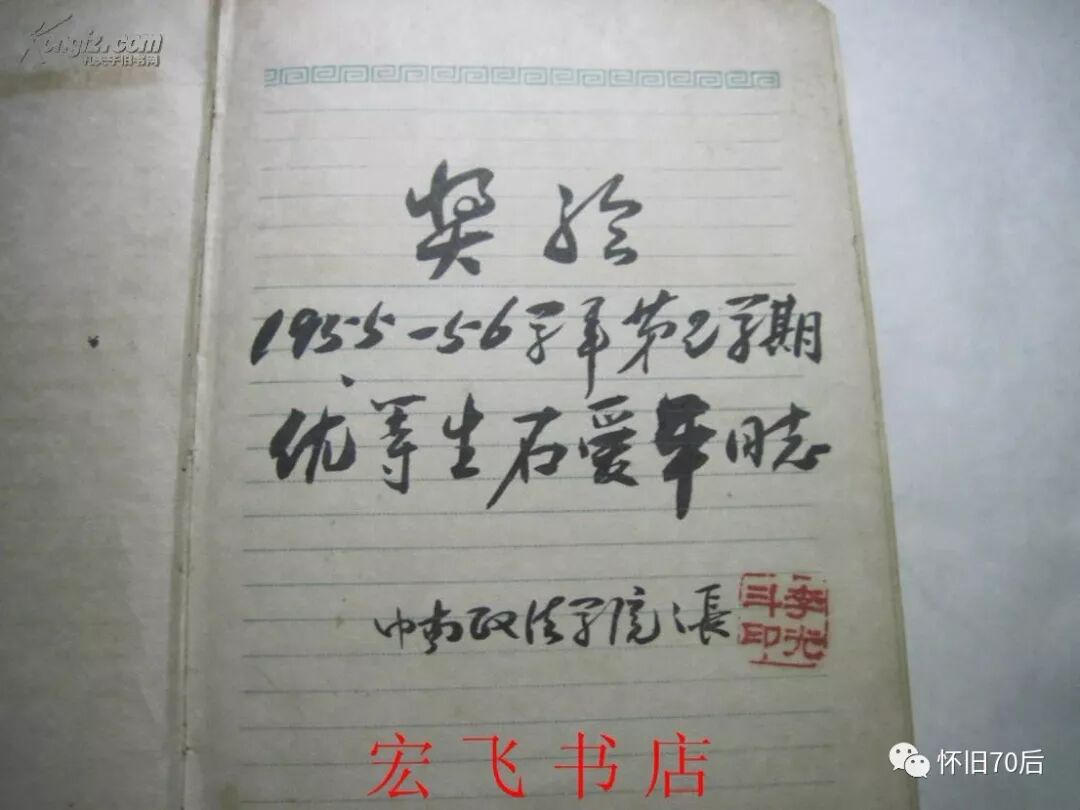 Kongfz.com
孔夫子旧书网
奖给
1955-56学年第二学期
优等生石爱军同志
中南政法学院々長
李光斗印
宏飞书店
怀旧70后